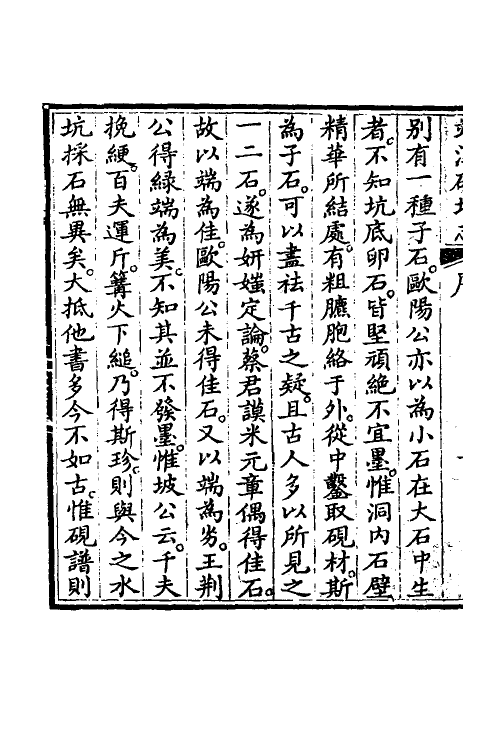 別有一種子石歐陽公亦以為小石在大石中生
者。不知坑底卵石。皆堅頑絕不宜墨。惟洞內石壁
精華所結處。有粗臕胞絡于外。從中鑿取硯材。斯
為子石。可以盡祛千古之疑。且古人多以所見之
一二石。遂為妍媸定論。蔡君謨米元章偶得佳石。
故以端為佳。歐陽公未得佳石。又以端為劣。王荆
公得綠端為美。不知其並不發墨。惟坡公云。千夫
挽綆。百夫運斤。篝火下縋。乃得斯珍。則與今之水
坑採石無異矣。大抵他書多今不如古。惟硯譜則